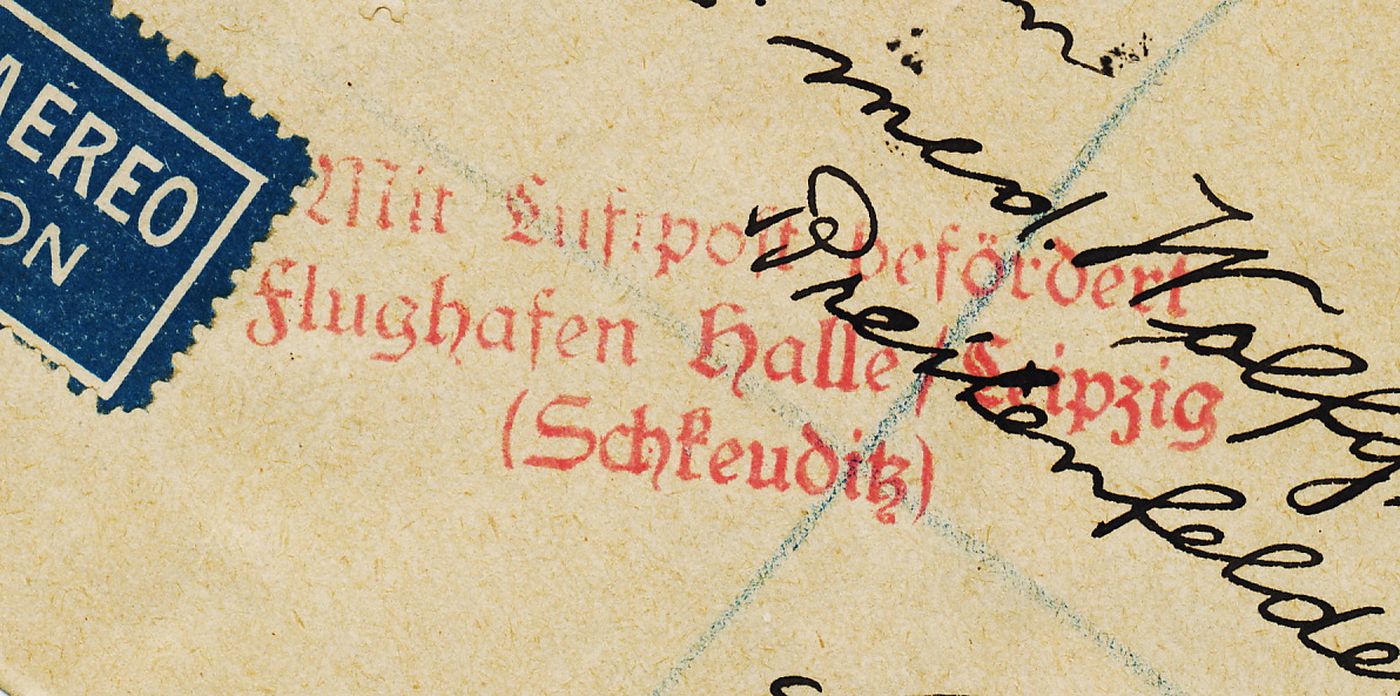 AEREO
ON
Mit Luftpost befördert
Flughafen Halle/Leipzig
(Schkeuditz)
med. Wolfg.